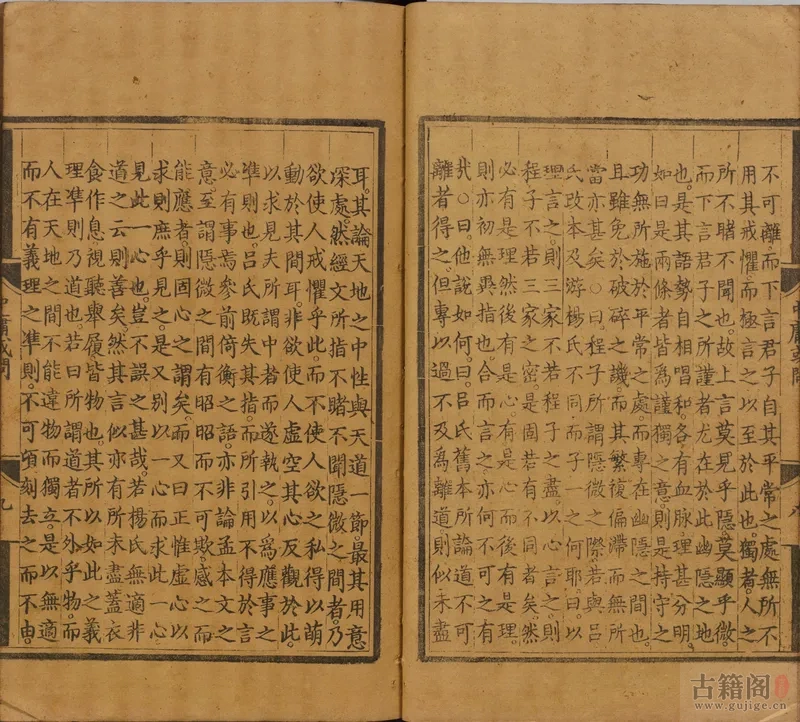 不可離而下言君子自其平常之處無所不
用其戒懼而極言之以至於此也獨者人之
所不睹不聞也故上言莫見乎隱莫顯乎微
而下言君子之所謹者尤在於此幽隱之地
也是其語勢自相唱和各有血脉理甚分明
如曰是兩條者皆為謹獨之意則是持守之
功無所施於平常之處而專在幽隱之間也
且雖免於破碎之譏而其繁復偏滯而無所
當亦甚矣○曰程子所謂隱微之際若與呂
氏改本及游楊氏不同而子一之何耶曰以
理言之則三家不若程子之盡以心言之則
程子不若三家之密是固若有不同者矣然
必有是理然後有是心有是心而後有是理
則亦初無異指也合而言之亦何不可之有
哉○曰他說如何曰呂氏舊本所論道不可
離者得之但專以過不及為離道則似未盡
耳其論天地之中性與天道一節最其用意
深處然經文所指不睹不聞隱微之間者乃
欲使人戒懼乎此而不使人欲之私得以萌
動於其間耳非欲使人虛空其心反觀於此
以求見夫所謂中者而遂執之以為應事之
準則也呂氏既失其指而所引用不得於言
必有事焉參前倚衡之語亦非論孟本文之
意至謂隱微之間有昭昭而不可欺感之而
能應者則固心之謂矣而又曰正惟虛心以
求則庶乎見之是又別以一心而求此一心
見此一心也豈不誤之甚哉若楊氏無適非
道之云則善矣然其言似亦有所未盡蓋衣
食作息視聽舉履皆物也其所以如此之義
理準則乃道也若曰所謂道者不外乎物而
人在天地之間不能違物而獨立是以無適
而不有義理之準則不可頃刻去之而不由
九
古籍阁
www.gujige.cn